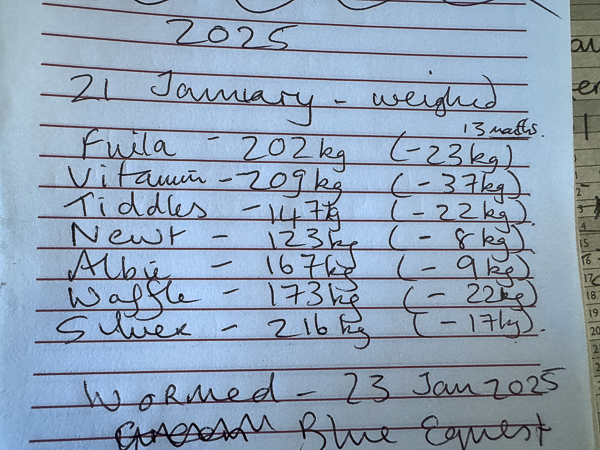 2025
21 January - weighed
13 months.
Fwila - 202kg (-23kg)
Vitamin - 209kg (-37kg)
Tiddles - 147kg (-22kg)
Newt - 123kg (-8kg)
Albie - 167kg (-9kg)
Waffle - 173kg (-22kg)
Silver - 216kg (-17kg).
Wormed - 23 Jan 2025
Blue Equest